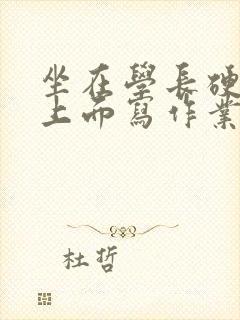 坐在學長硬
上而寫作業
杜哲